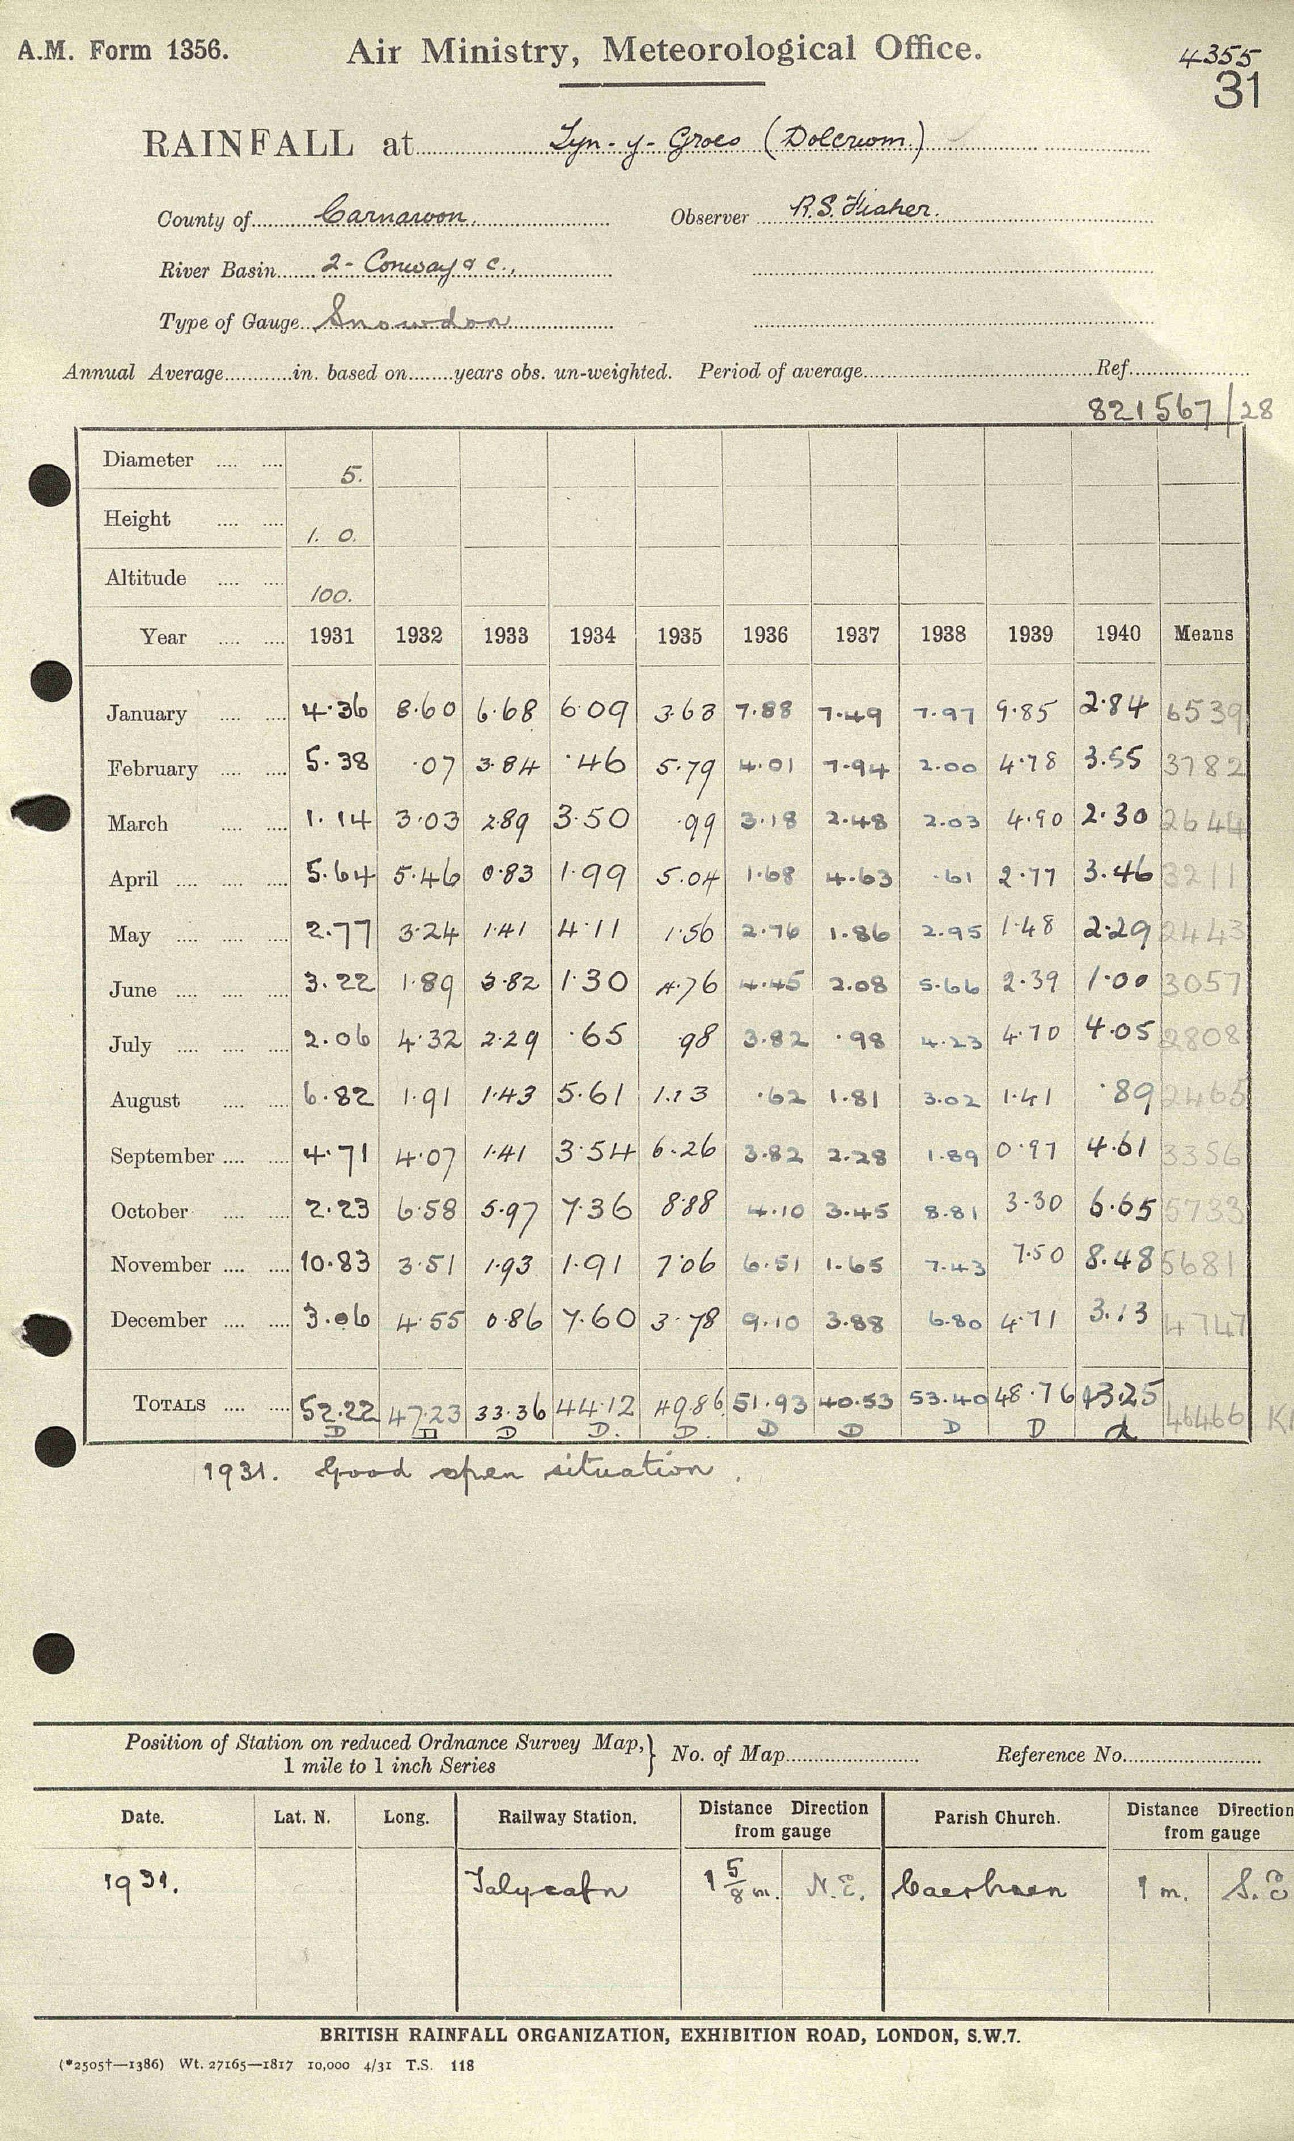 A.M. Form 1356. Air Ministry, Meteorological Office. 4355
31
RAINFALL at Tyn-y-Groes (Dolcrwm)
County of Carnarvon. Observer R.S. Fisher.
River Basin 2- Conway & c.,
Type of Gauge Snowdon
Annual Average in. based on years obs. un-weighted. Period of average Ref.
821567/28
Diameter 5.
Height 1. 0.
Altitude 100.
Year 1931 1932 1933 1934 1935 1936 1937 1938 1939 1940 Means
January 4.36 8.60 6.68 6.09 3.63 7.88 7.49 7.97 9.85 2.84 6539
February 5.38 .07 3.84 .46 5.79 4.01 7.94 2.00 4.78 3.55 3782
March 1.14 3.03 2.89 3.50 .99 3.18 2.48 2.03 4.90 2.30 2644
April 5.64 5.46 0.83 1.99 5.04 1.68 4.63 .61 2.77 3.46 3211
May 2.77 3.24 1.41 4.11 1.56 2.76 1.86 2.95 1.48 2.29 2443
June 3.22 1.89 3.82 1.30 4.76 4.45 2.08 5.66 2.39 1.00 3057
July 2.06 4.32 2.29 .65 .98 3.82 .98 4.23 4.70 4.05 2808
August 6.82 1.91 1.43 5.61 1.13 .62 1.81 3.02 1.41 .89 2465
September 4.71 4.07 1.41 3.54 6.26 3.82 2.28 1.89 0.97 4.61 3356
October 2.23 6.58 5.97 7.36 8.88 4.10 3.45 8.81 3.30 6.65 5733
November 10.83 3.51 1.93 1.91 7.06 6.51 1.65 7.43 7.50 8.48 5681
December 3.06 4.55 0.86 7.60 3.78 9.10 3.88 6.80 4.71 3.13 4747
TOTALS 52.22 47.23 33.36 44.12 49.86 51.93 40.53 53.40 48.76 43.25 46466
D D D D. D. D D D D d
1931. Good open situation.
Position of Station on reduced Ordnance Survey Map, 1 mile to 1 inch Series } No. of Map Reference No.
Date. Lat. N. Long. Railway Station. Distance Direction from gauge Parish Church. Distance Direction from gauge
1931. Talycafn 1 5/8 m. N.E. Caerhaen 1 m. S.E
BRITISH RAINFALL ORGANIZATION, EXHIBITION ROAD, LONDON, S.W.7.
(*2505†—1386) Wt. 27165—1817 10,000 4/31 T.S. 118